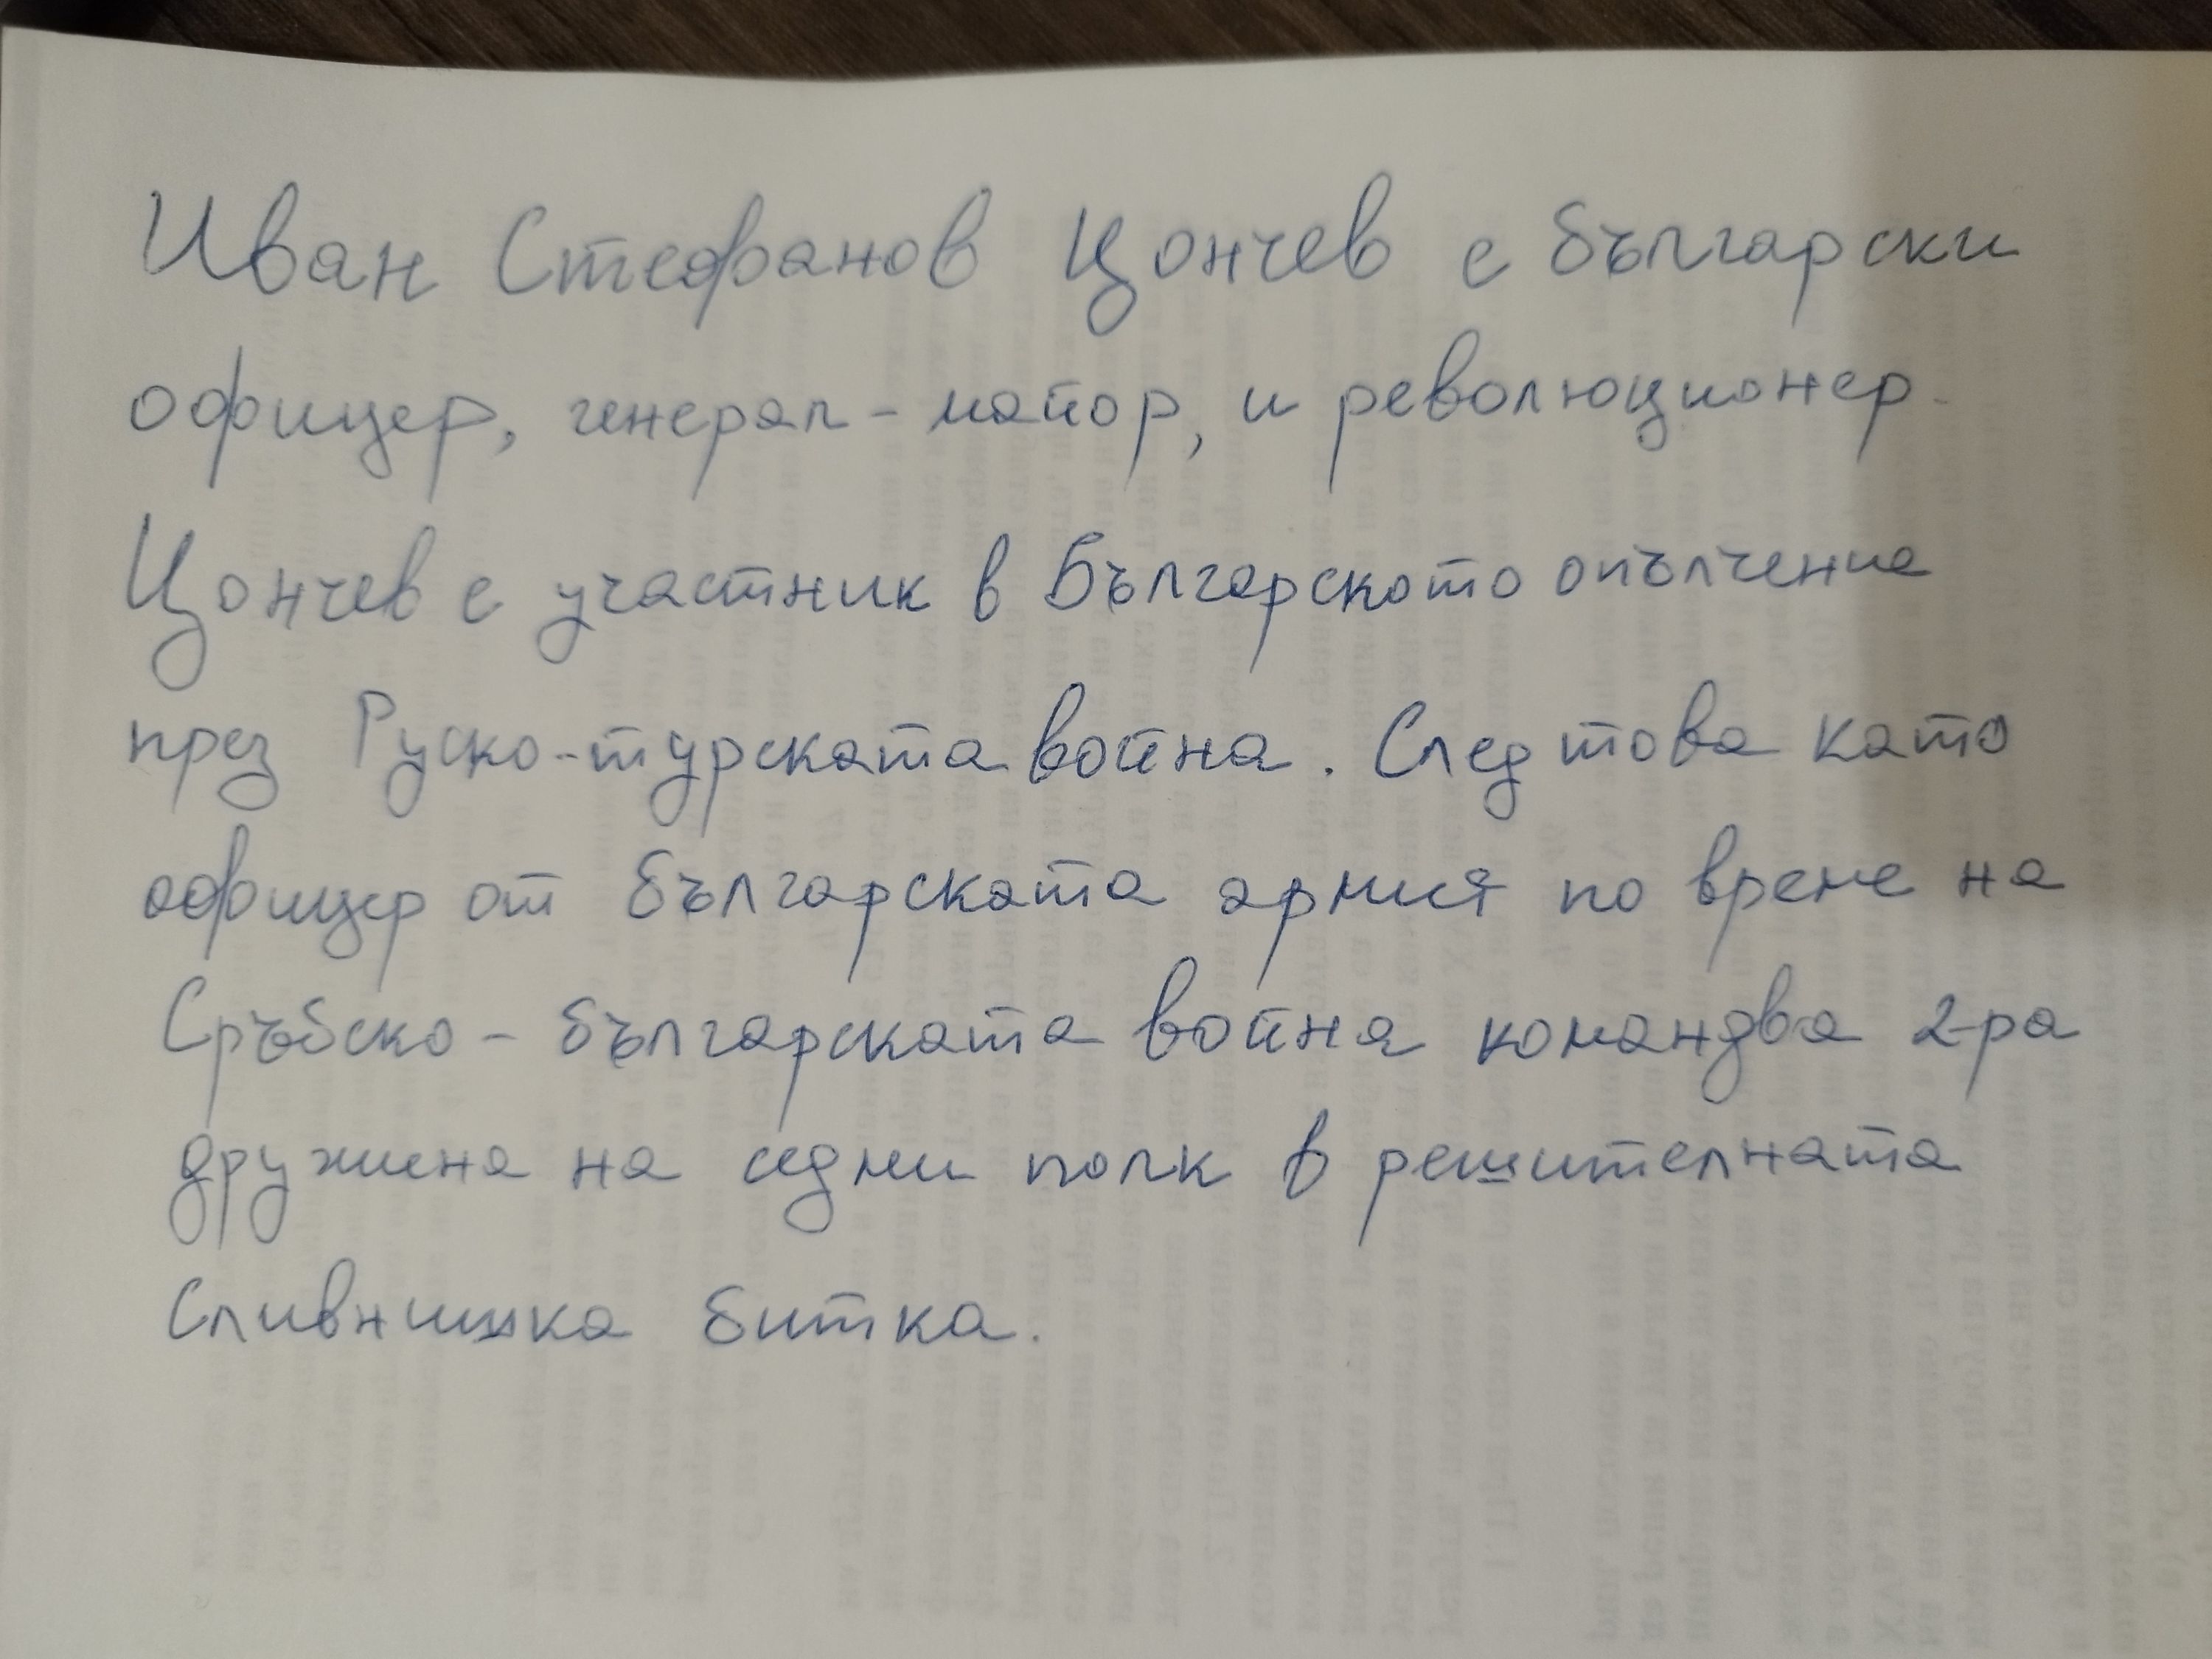 Иван Стефанов Цончев е български
офицер, генерал-майор, и революционер.
Цончев е участник в Българското опълчение
през Руско-турската война. След това като
офицер от българската армия по време на
Сръбско-българската война командва 2-ра
дружина на седми полк в решителната
Сливнишка битка.